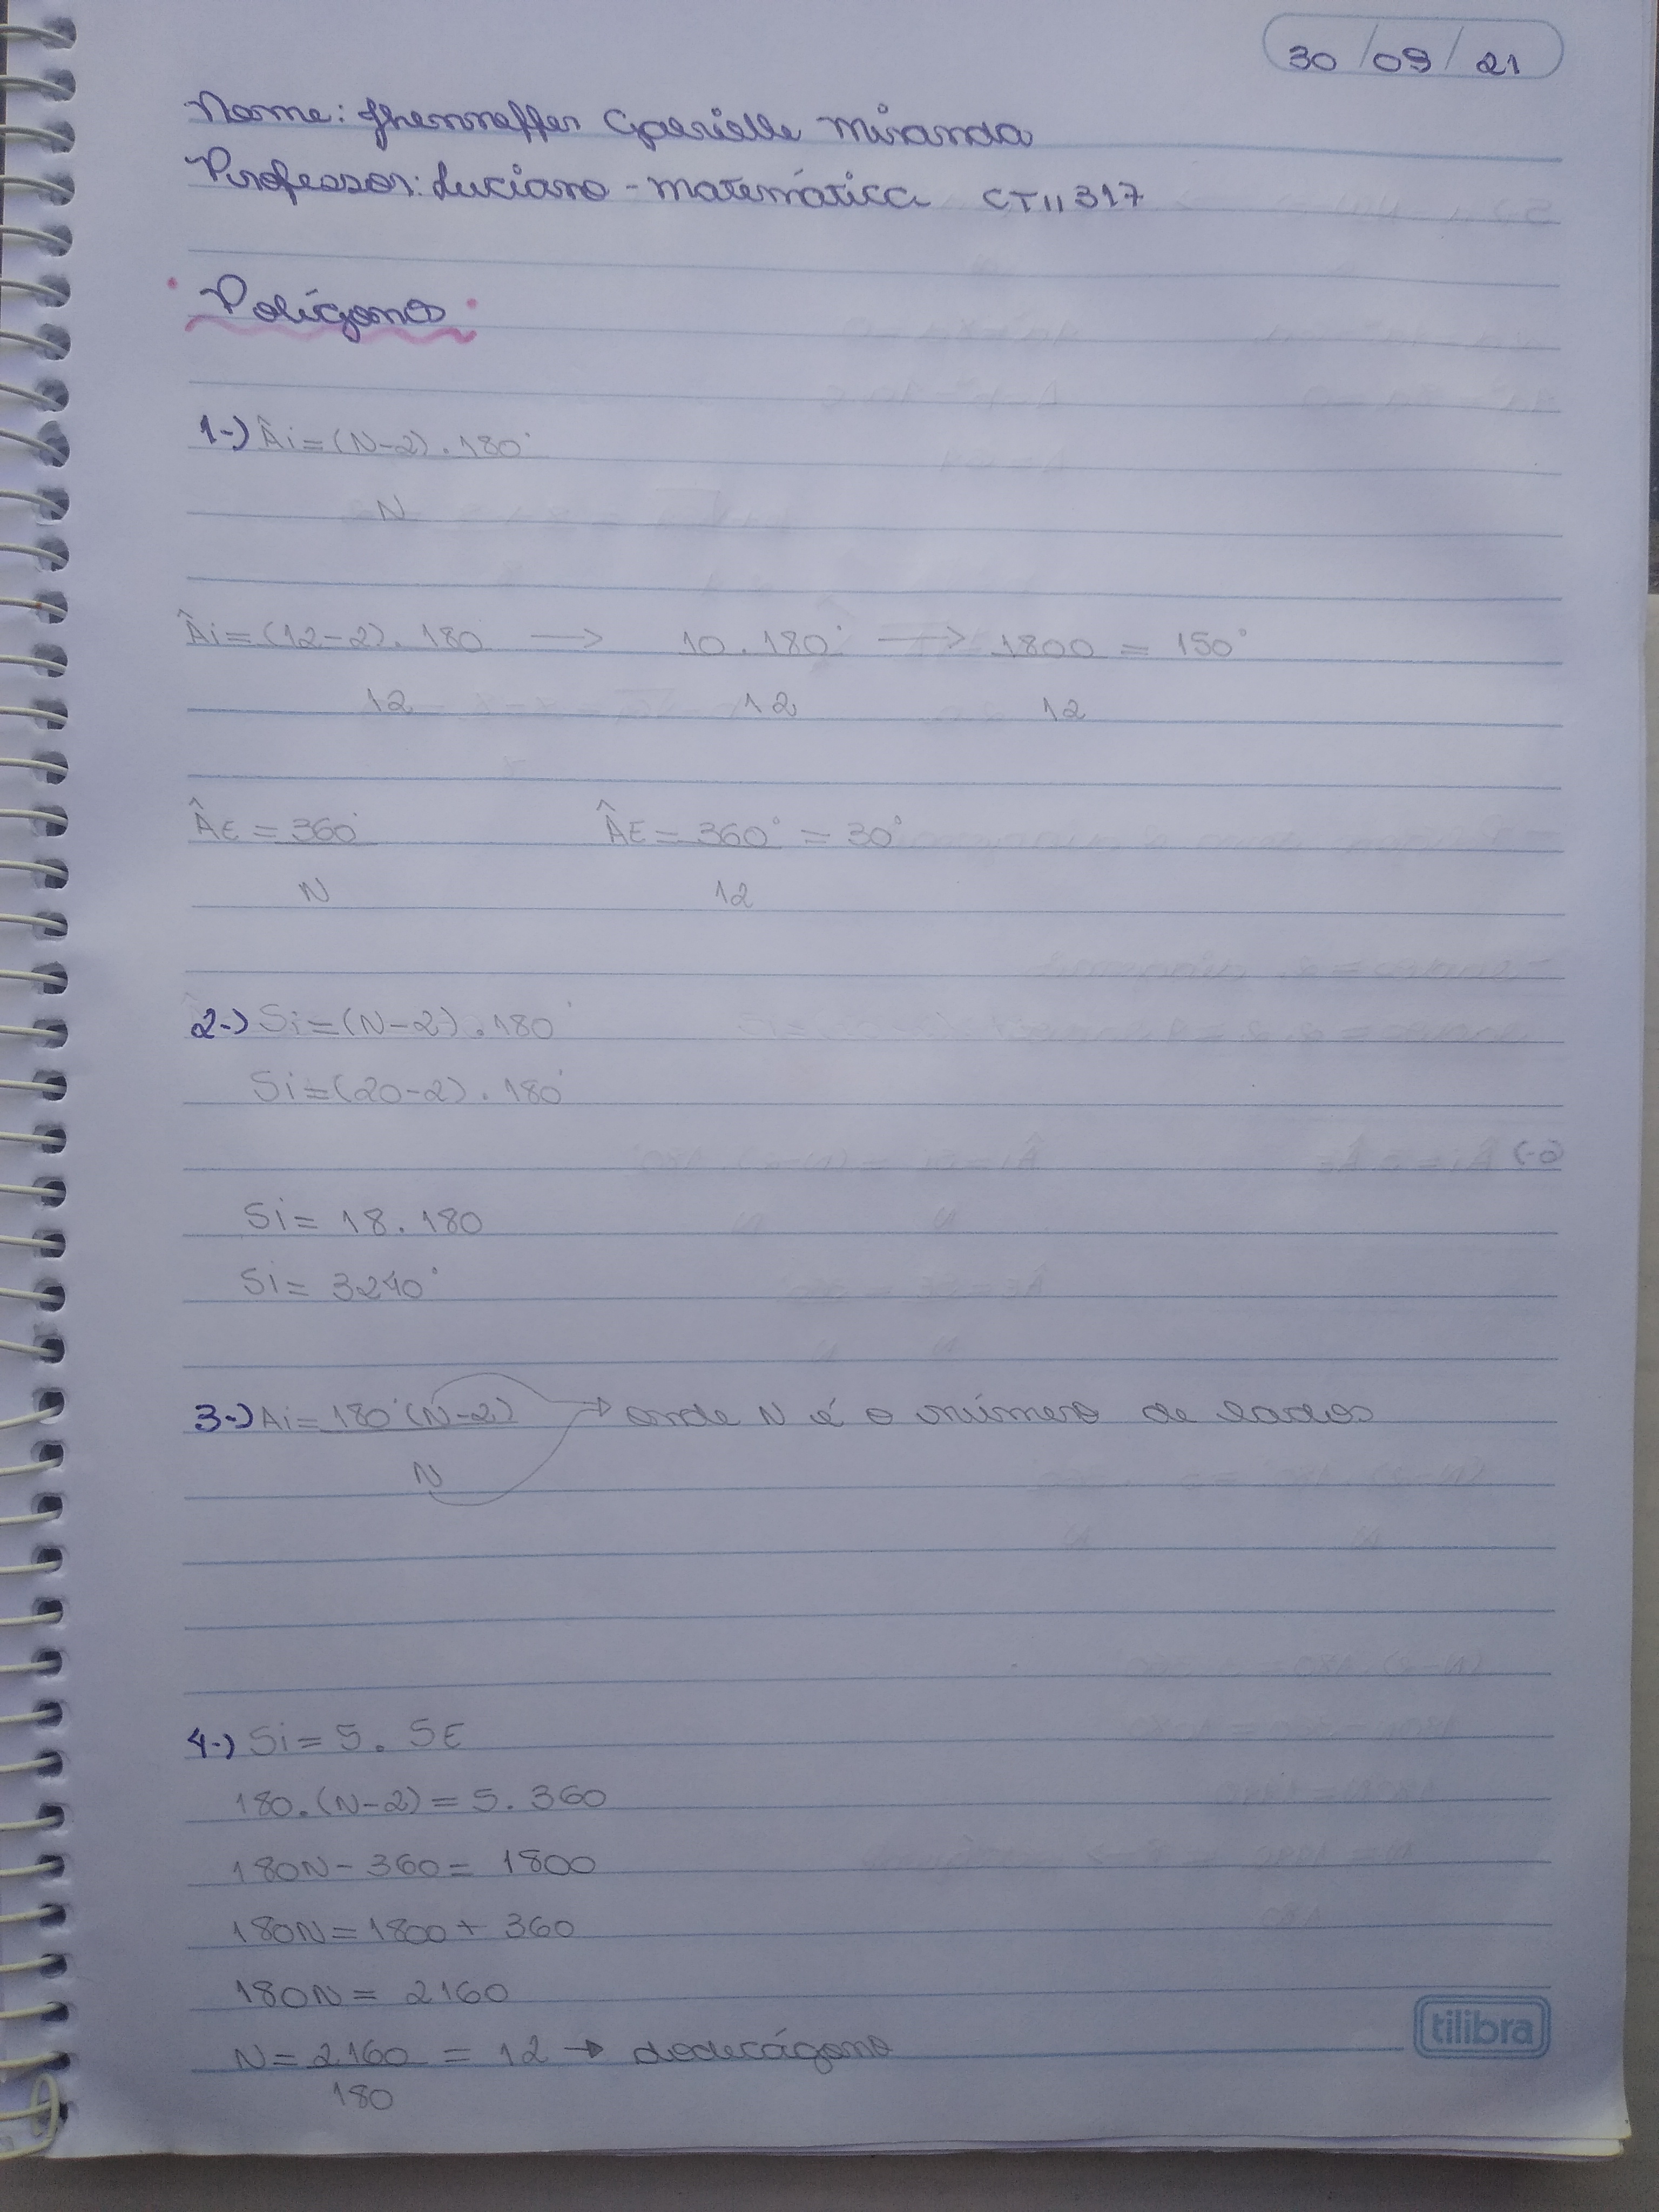 30/09/21
Nome: Jhenneffer Gabrielle Miranda
Professor: Luciano - matemática CTII 317
Polígono
1-) Âi = (N-2) . 180°
N
Âi = (12-2) . 180 → 10 . 180° → 1800 = 150°
12 12 12
ÂE = 360° ÂE = 360° = 30°
N 12
2-) Si = (N-2) . 180°
Si = (20-2) . 180°
Si = 18 . 180
Si = 3240°
3-) Ai = 180°(N-2) → onde N é o número de lados
N
4-) Si = 5 . SE
180 . (N-2) = 5 . 360
180N - 360 = 1800
180N = 1800 + 360
180N = 2160
N = 2160 = 12 → dodecágono
180
tilibra